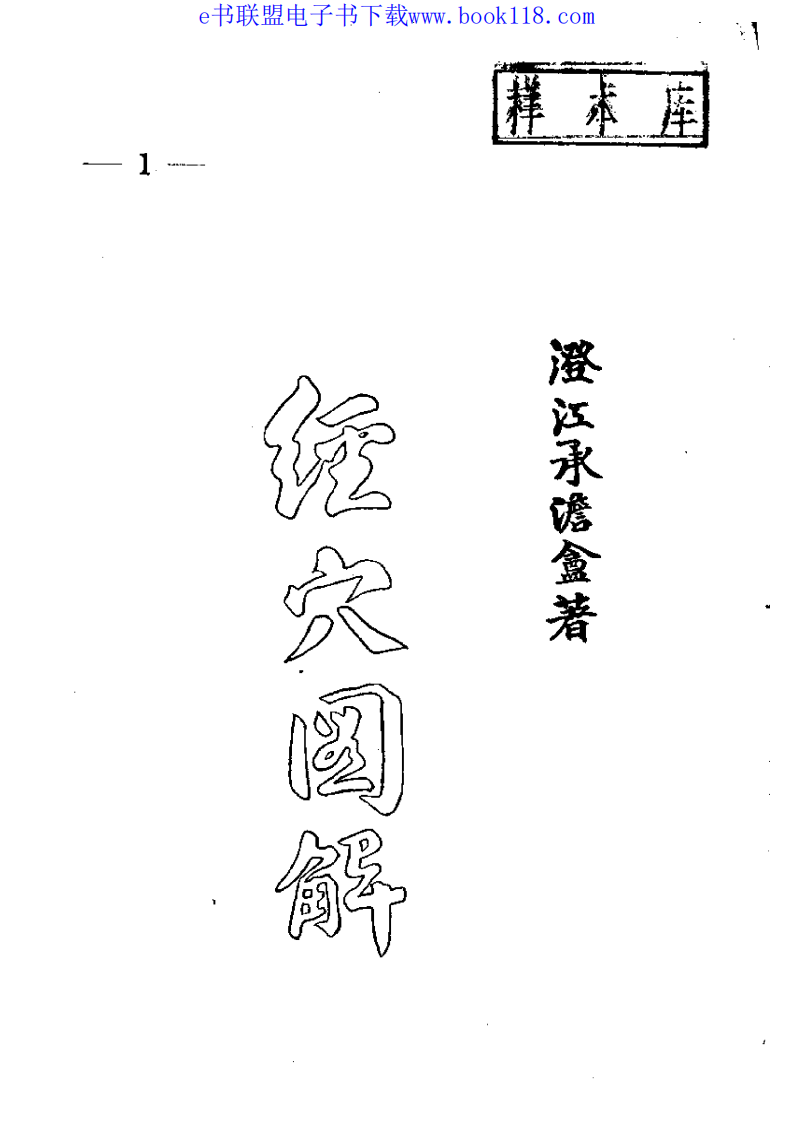 e书联盟电子书下载www.book118.com
样本库
— 1 —
澄江承澹盦著
經穴图解